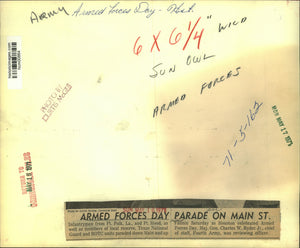 ARMY
Armed Forces Day - Hst.
6 x 6 1/4" WILD
SUN OWL
ARMED FORCES
PHOTO BY
CURTIS McGEE
MON MAY 17 1971
71-5-162
RETURNED TO
ARMED FORCES DAY PARADE ON MAIN ST.
Infantrymen from Ft. Polk, La., and Ft. Hood, as
well as members of local reserve, Texas National
Guard and ROTC units paraded down Main and up
Travis Saturday as Houston celebrated Armed
Forces Day. Maj. Gen. Charles W. Ryder Jr., chief
of staff, Fourth Army, was reviewing officer.